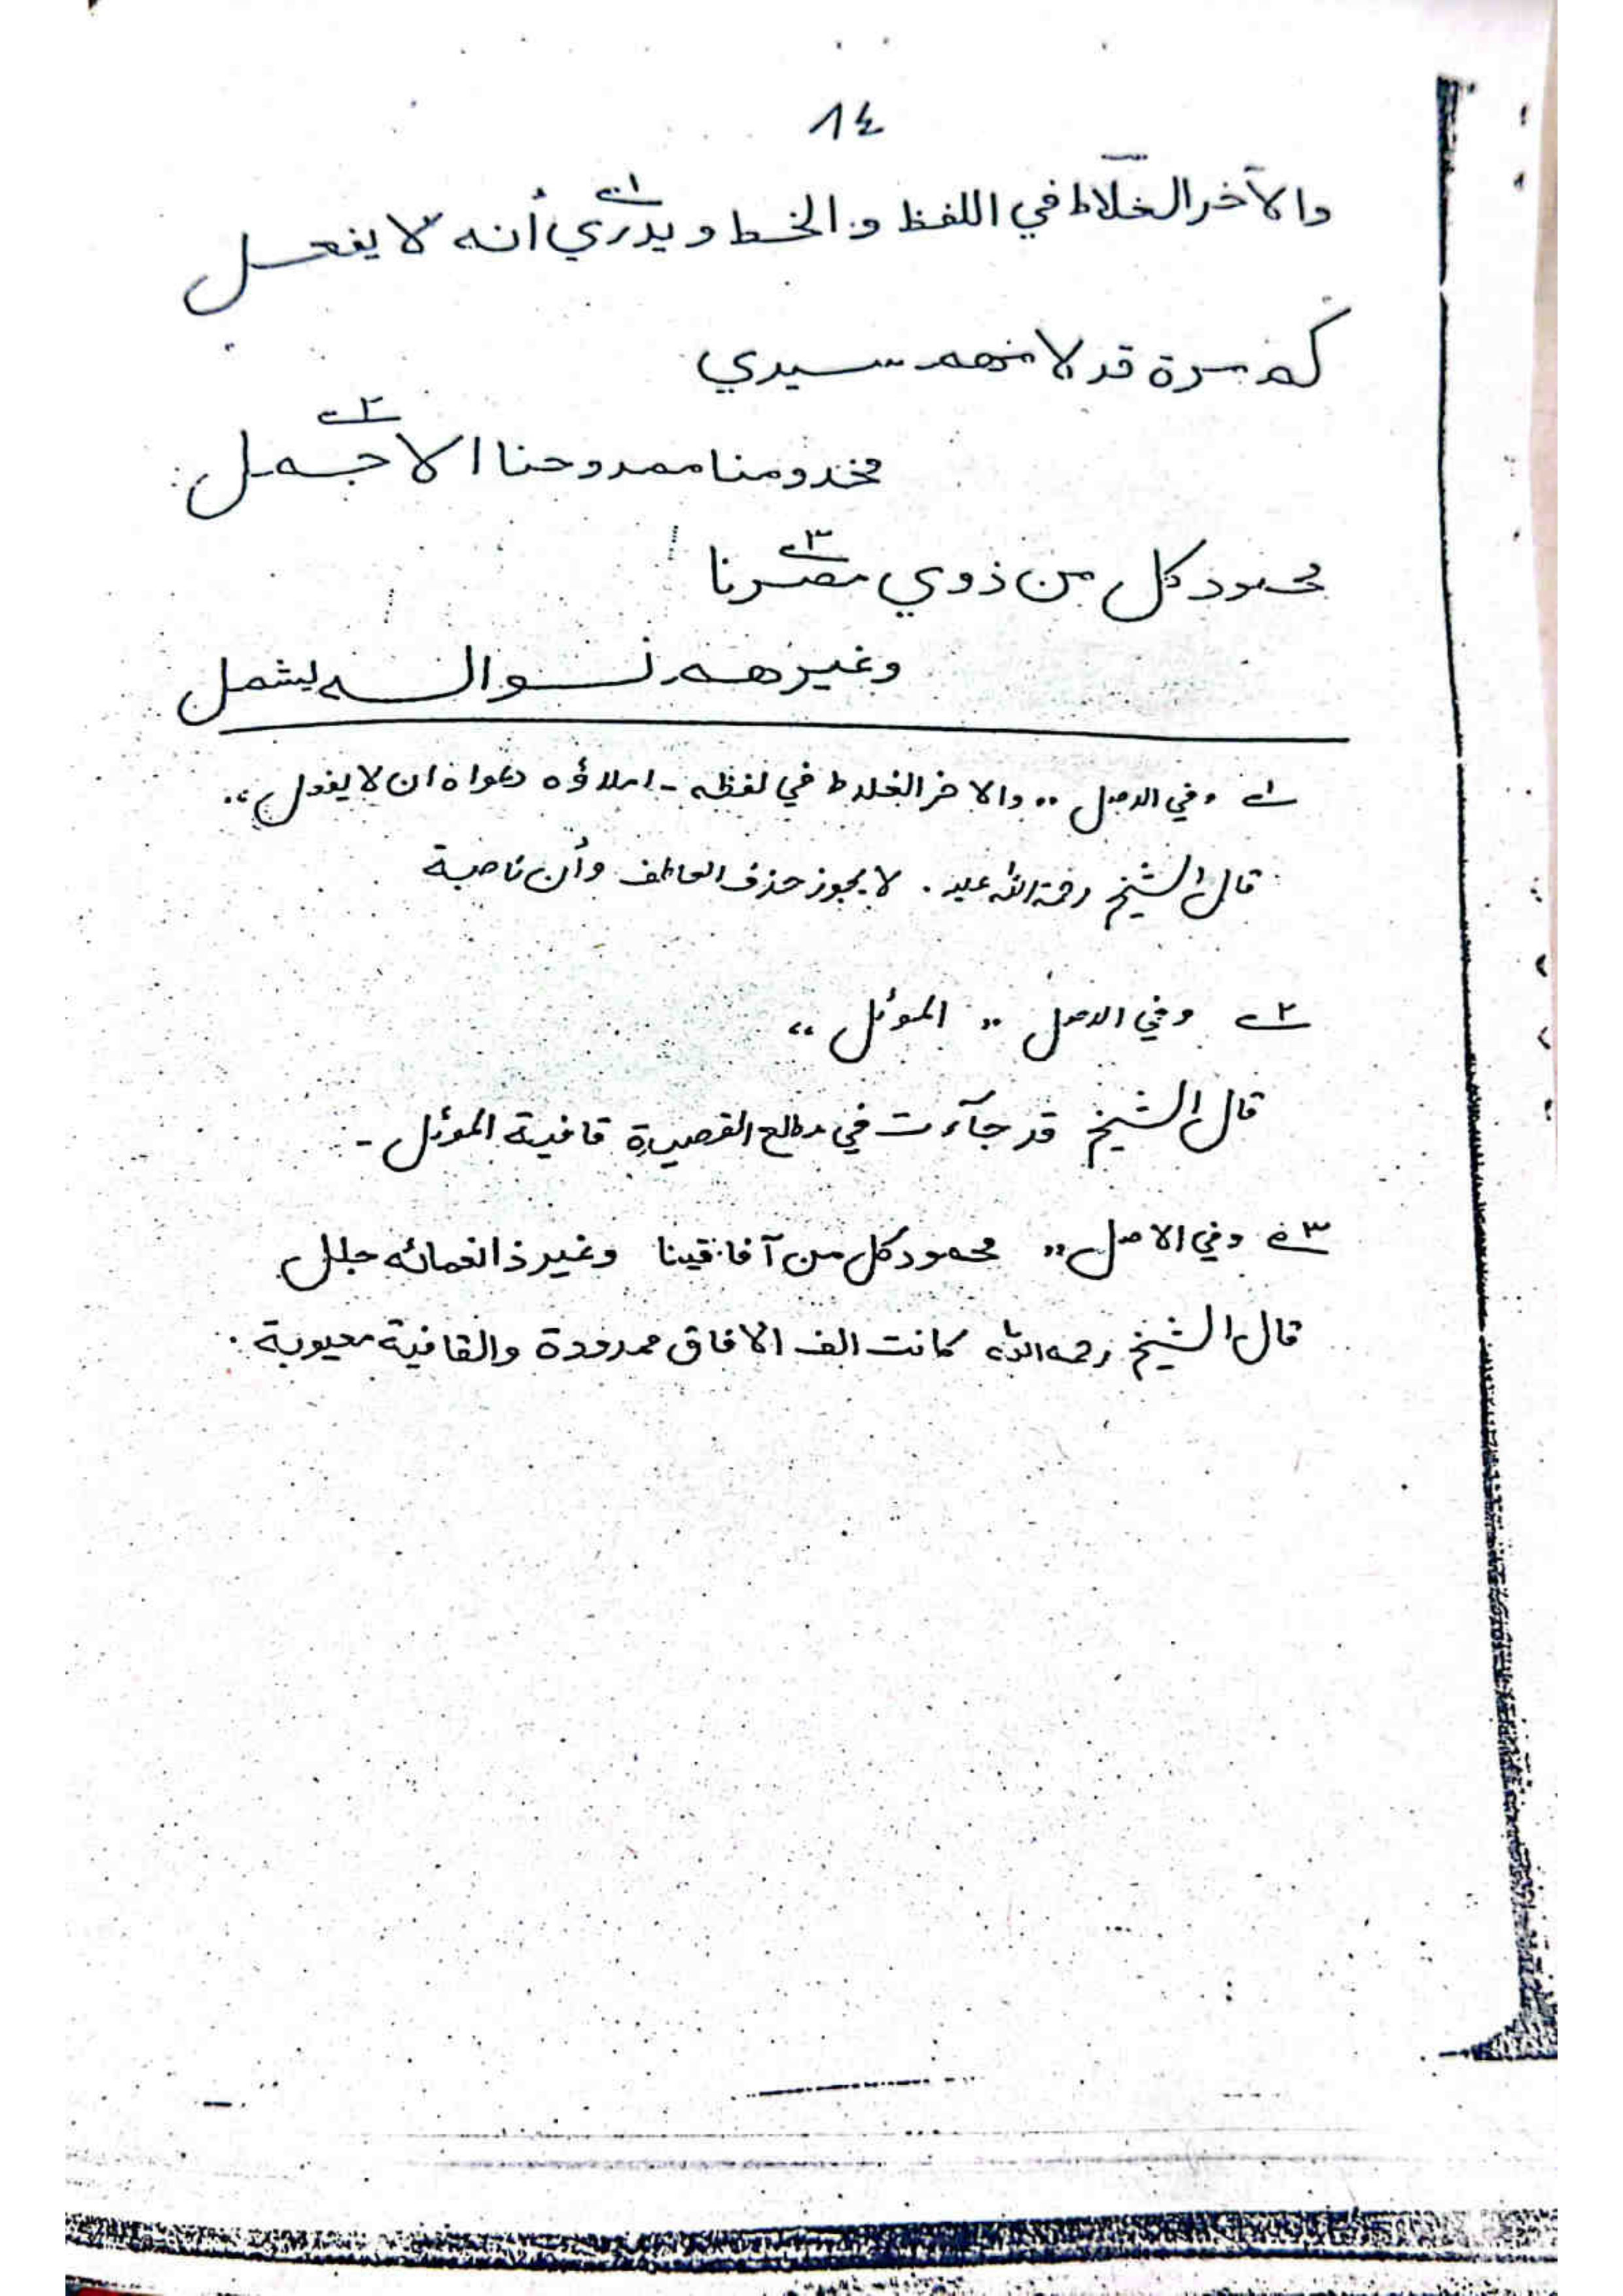 ١٤
والآخر الغلّاط في اللفظ و الخط ويدري١ أنه لا يفعل
كم مرة قد لامنهم سيدي
مخدومنا ممدوحنا الاجمل٢
محمود كل من ذوي مصرنا٣
وغيرهم نواله يشمل
١ وفي الاصل ،، والاخر الغلاط في لفظه - املاؤه دعواه ان لا يفعل ،،
قال الشيخ رحمة الله عليه . لا يجوز حذف العاطف وأن ناصبة
٢ وفي الاصل ،، الموئل ،،
قال الشيخ قد جآءت في مطلع القصيدة قافية الموئل -
٣ وفي الاصل ،، محمود كل من آفاقينا وغير ذا نعمائه جلل
قال الشيخ رحمه الله كانت الف الافاق ممدودة والقافية معيوبة .